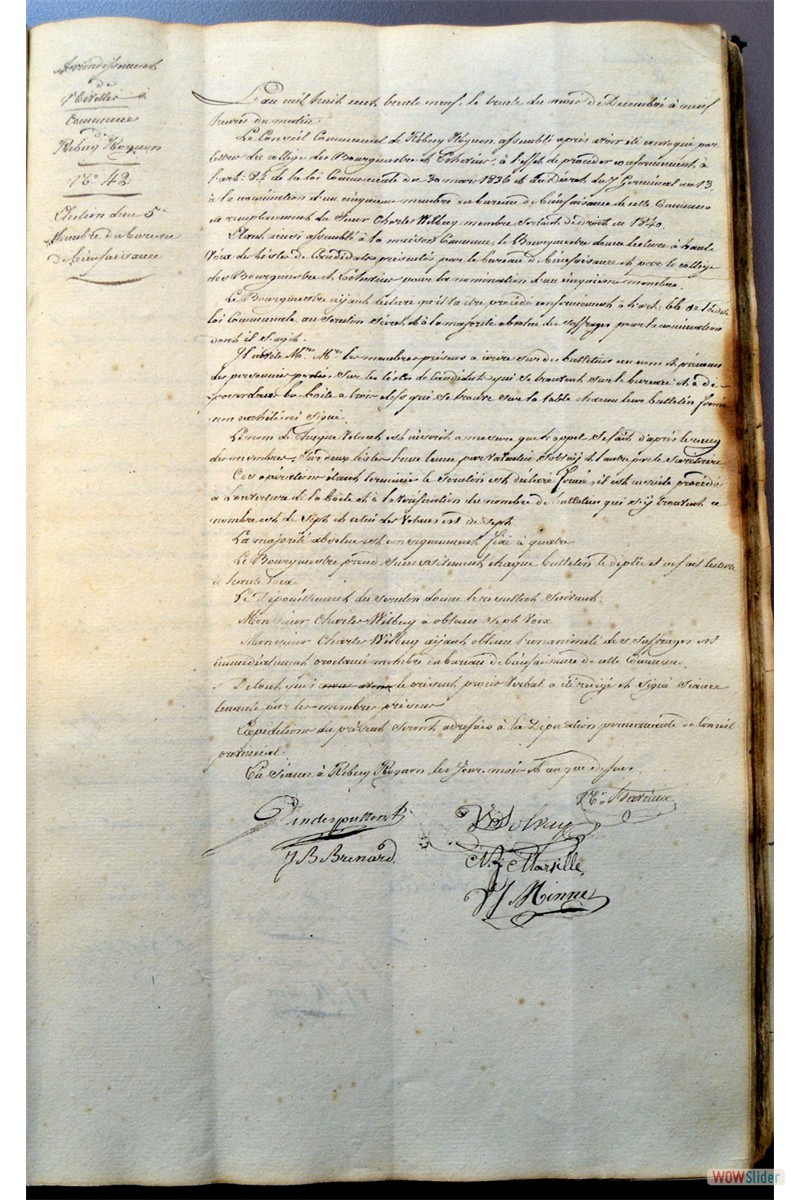 Arrondissement
de
Nivelles
Commune
de
Rebecq Rognon
N° 42
Election d'un 5e
Membre du bureau
de bienfaisance
L'an mil huit cent trente neuf, le trente du mois de Decembre à neuf
heures du matin
Le Conseil Communal de Rebecq Rognon assemblé après avoir été convoqué par
lettres du collège des Bourgmestre et Echevins à l'effet de procéder conformément à
l'art. 84 de la loi Communale du 30 mars 1836 et du Décret du 7 Germinal an 13
à la nomination d'un cinquième membre du bureau de bienfaisance de cette Commune
en remplacement du Sieur Charles Wilbucq membre sortant de droit en 1840.
Etant ainsi assemblé à la maison Commune, le Bourgmestre donne lecture à haute
voix des listes de Candidats présentés par le bureau de bienfaisance et par le collège
des Bourgmestre et Echevins pour la nomination d'un cinquième membre.
Le Bourgmestre ayant déclaré qu'il va être procédé conformément à l'art. 66 de la dite
loi Communale au scrutin secret et à la majorité absolue des suffrages pour la nomination
dont il s'agit.
Il invite les membres présens à écrire sur des bulletins un nom
des personnes portées sur les listes de Candidats qui se trouvent sur le bureau et à
dans la boîte à trois clefs qui se trouve sur la table chacun leur bulletin fermé
non signé.
Le nom de chaque Votant est inscrit a mesure que l'appel se fait d'après le rang
des membres, sur deux listes l'une tenue par et l'autre par le Secrétaire
Ces opérations étant terminées le scrutin est déclaré fermé, il est ensuite procédé
à l'ouverture de la boîte et à la vérification du nombre de bulletins qui s'y trouvent, ce
nombre est de Sept et celui des Votans est de Sept
La majorité absolue est conséquemment fixée à quatre
Le Bourgmestre prend successivement chaque bulletin le déplie et en fait lecture
à haute voix
Le dépouillement du scrutin donne le résultat suivant
Monsieur Charles Wilbucq a obtenu Sept Voix
Monsieur Charles Wilbucq ayant obtenu l'unanimité des suffrages est
immédiatement proclamé membre du bureau de bienfaisance de cette Commune.
De tout quoi le présent procès Verbal a été rédigé et signé séance
tenante par les membres présens
Expéditions du présent seront adressées à la Députation permanente du Conseil
provincial.
En séance à Rebecq Rognon les Jour, mois et an que dessus.
J B Brenard
N. J. Marsille